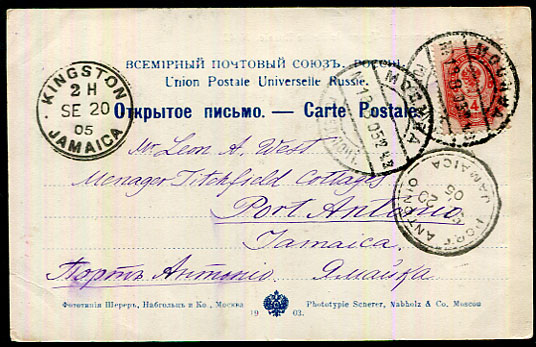 ВСЕМІРНЫЙ ПОЧТОВЫЙ СОЮЗЪ. РОССІЯ.
Union Postale Universelle Russie.
Открытое письмо. — Carte Postale
KINGSTON
2 H
SE 20
05
JAMAICA
МОСКВА
4
МОСКВА
PORT ANTONIO
20
05
JAMAICA
Mr. Leon A. West
Menager Titchfield Cottages.
Port Antonio
Jamaica.
Портъ Антоніо. Ямайка
Фототипія Шереръ, Набгольцъ и Ко., Москва
Phototypie Scherer, Nabholz & Co. Moscou
19 03.